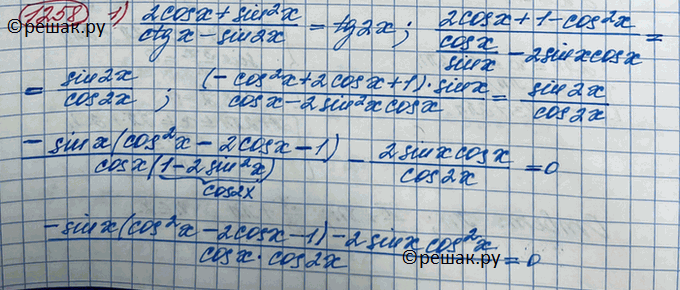 ©решак.ру
1258 1) (2cosx + sin²x)/(ctgx − sin2x) = tg2x; (2cosx + 1 − cos²x)/(cosx/sinx − 2sinxcosx) =
= sin2x/cos2x; ((−cos²x + 2cosx + 1)·sinx)/(cosx − 2sin²xcosx) = sin2x/cos2x
−sinx(cos²x − 2cosx − 1)/(cosx(1 − 2sin²x)) − 2sinxcosx/cos2x = 0
cos2x
(−sinx(cos²x − 2cosx − 1) − 2sinxcos²x)/(cosx·cos2x) = 0
©решак.ру